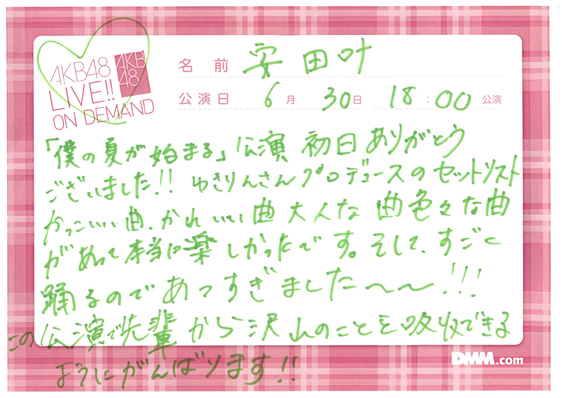 AKB48
LIVE!!
ON DEMAND
AKB
48
名前 安田叶
公演日 6月 30日 18:00 公演
「僕の夏が始まる」公演 初日ありがとう
ございました!! ゆきりんさんプロデュースのセットリスト
かっこいい曲、かわいい曲 大人な 曲色々な曲
があって本当に楽しかったです。そして、すごく
踊るのであつすぎました〜〜!!!
この公演で先輩から沢山のことを吸収できる
ようにがんばります!!
DMM.com